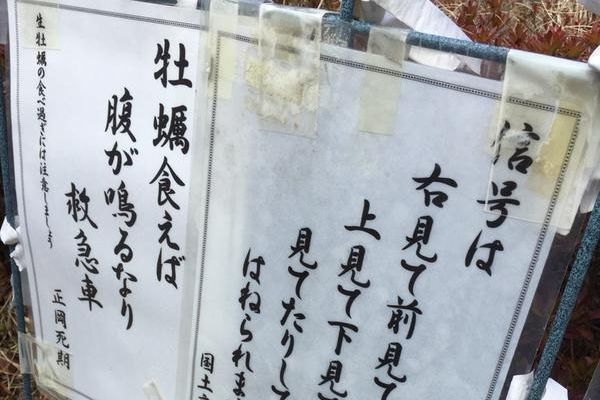 信号は
右見て前見て
上見て下見
見てたりして
はねられま
国土
牡蠣食えば
腹が鳴るなり
救急車
正岡死期
生牡蠣の食べ過ぎには注意しましょう